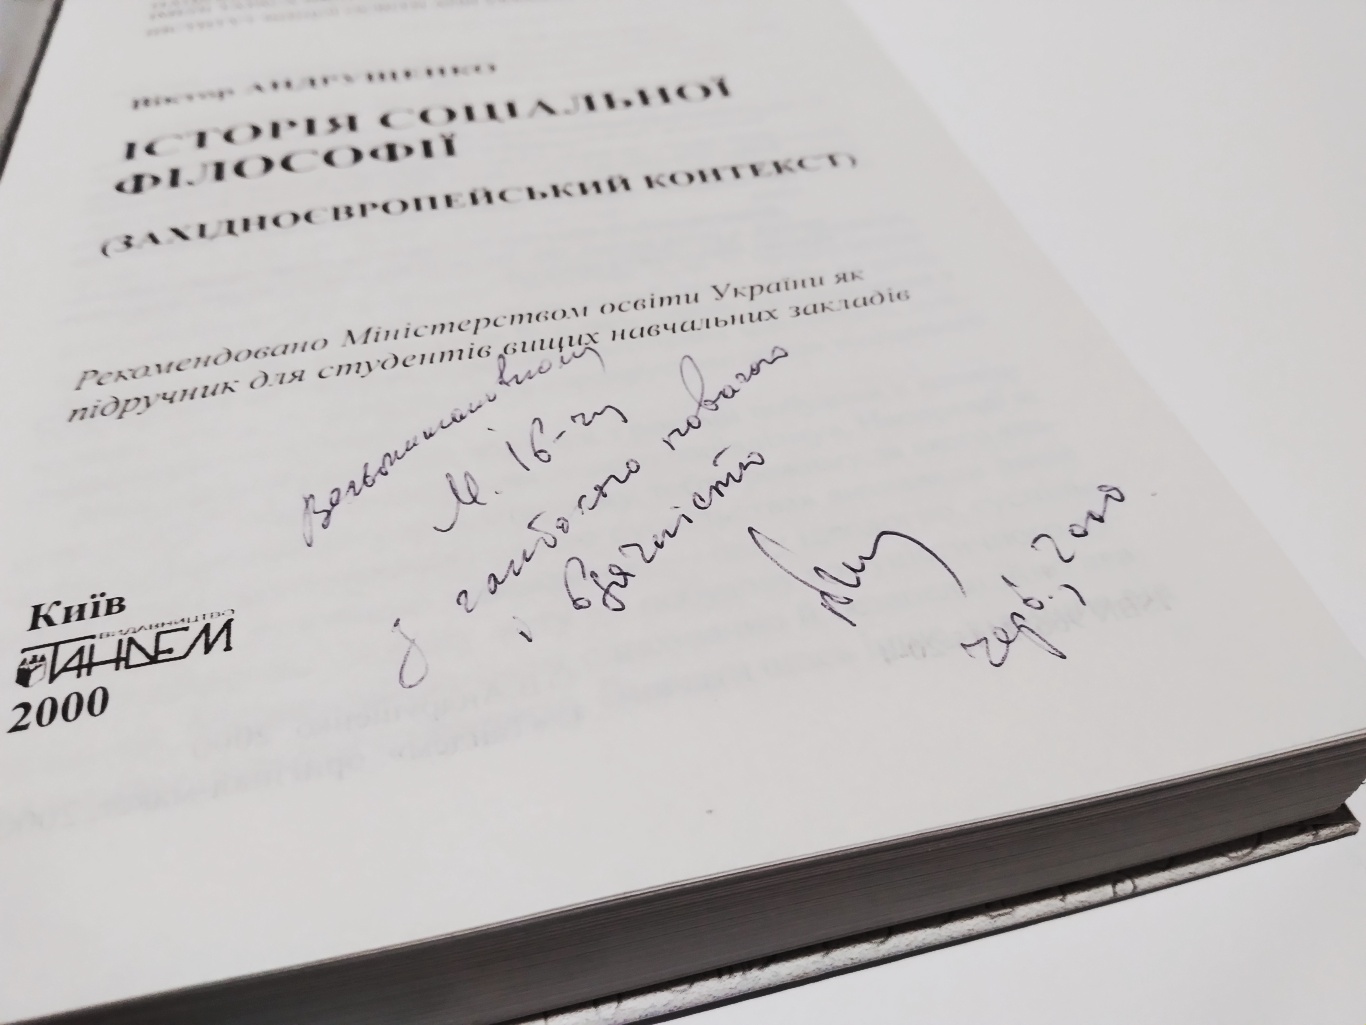 Віктор АНДРУЩЕНКО
ІСТОРІЯ СОЦІАЛЬНОЇ
ФІЛОСОФІЇ
(ЗАХІДНОЄВРОПЕЙСЬКИЙ КОНТЕКСТ)
Рекомендовано Міністерством освіти України як
підручник для студентів вищих навчальних закладів
Вельмишановному
М. Ів-чу
з глибокою повагою
і вдячністю
черв., 2000
Київ
ВИДАВНИЦТВО
ТАНДЕМ
2000